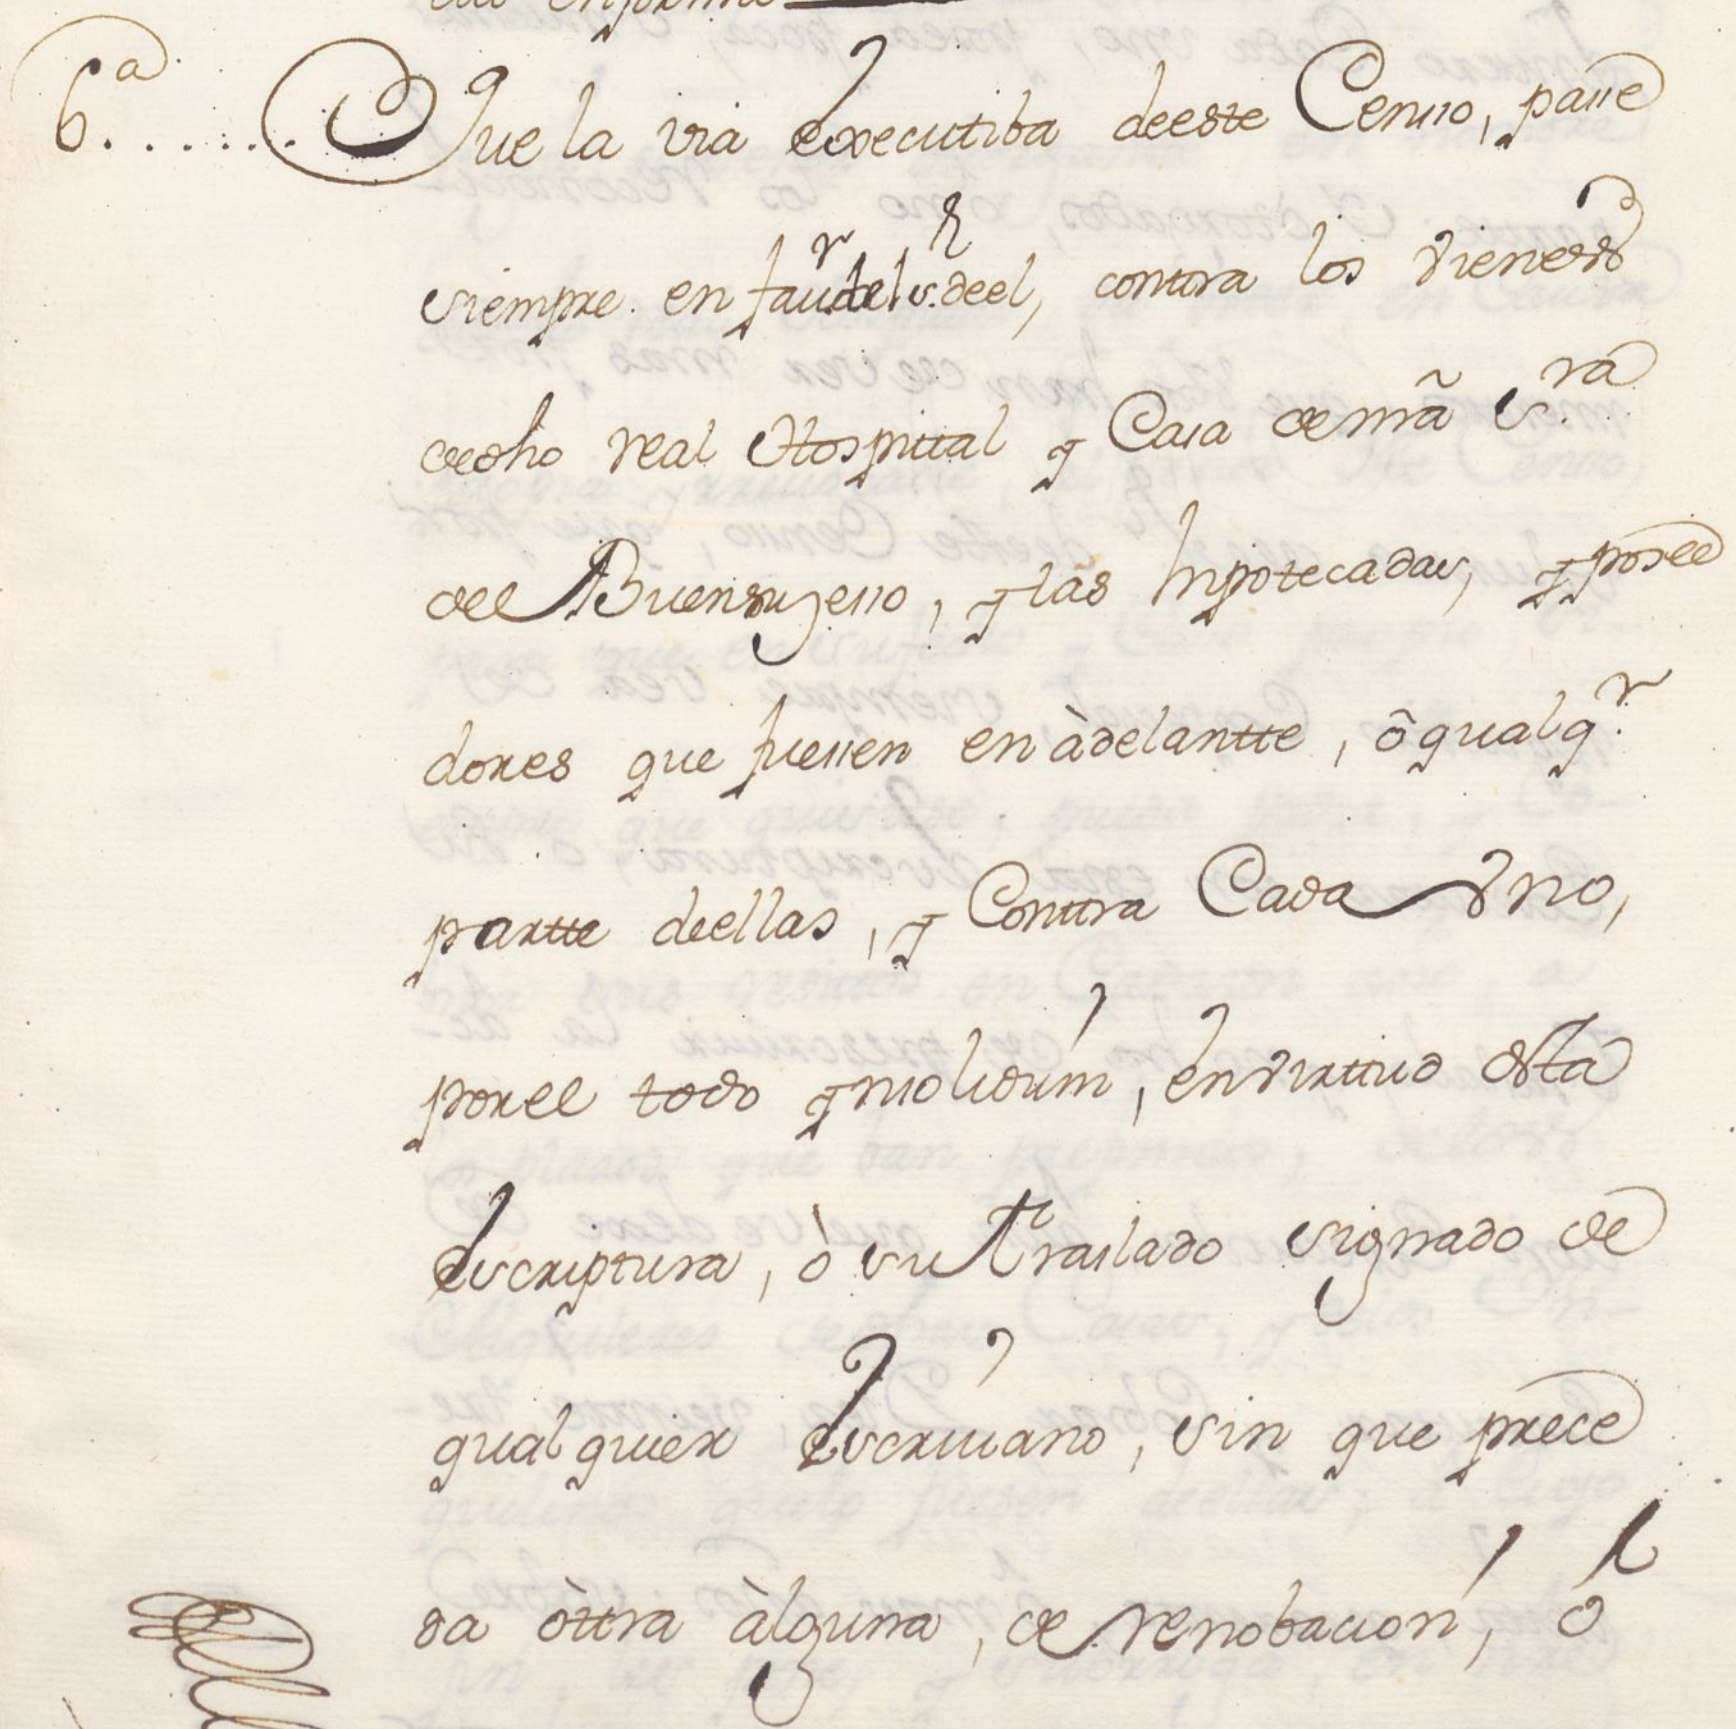 6ª...... Que la via executiba deeste Censso, passe
siempre en faur. del s.r deel, contra los vienes
dedho real Hospittal y Casa de nrã s.ra
del Buensuzesso, y las hipotecadas, y posee
dores que fuessen en àdelantte, ô qualq.r
partte deellas, y Conttra Cada Vno,
porel todo ynsolidum, en virttud dstа
escriptura, ò su traslado signado de
qualquier escriuano, sin que prece
da òttra àlguna, de renobacion, ò